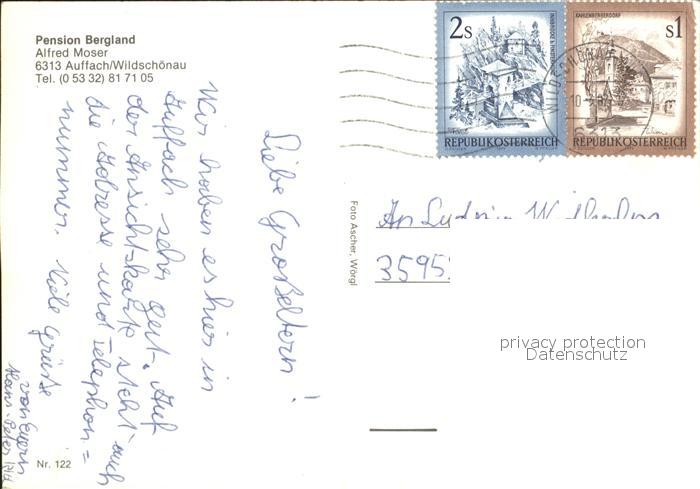 Pension Bergland
Alfred Moser
6313 Auffach/Wildschönau
Tel. (0 53 32) 81 71 05
Liebe Großeltern!
Wir haben es hier in
Auffach sehr gut. Auf
der Ansichtskarte steht auch
die Adresse und Telephon=
nummer. Viele Grüße
von Euern
Hans-Peter
Nr. 122
Foto Ascher, Wörgl
2s
REPUBLIK ÖSTERREICH
KAHLENBERGERDORF
s1
REPUBLIK ÖSTERREICH
WILDSCHÖNAU
6313
An Ludwig
3595
privacy protection
Datenschutz